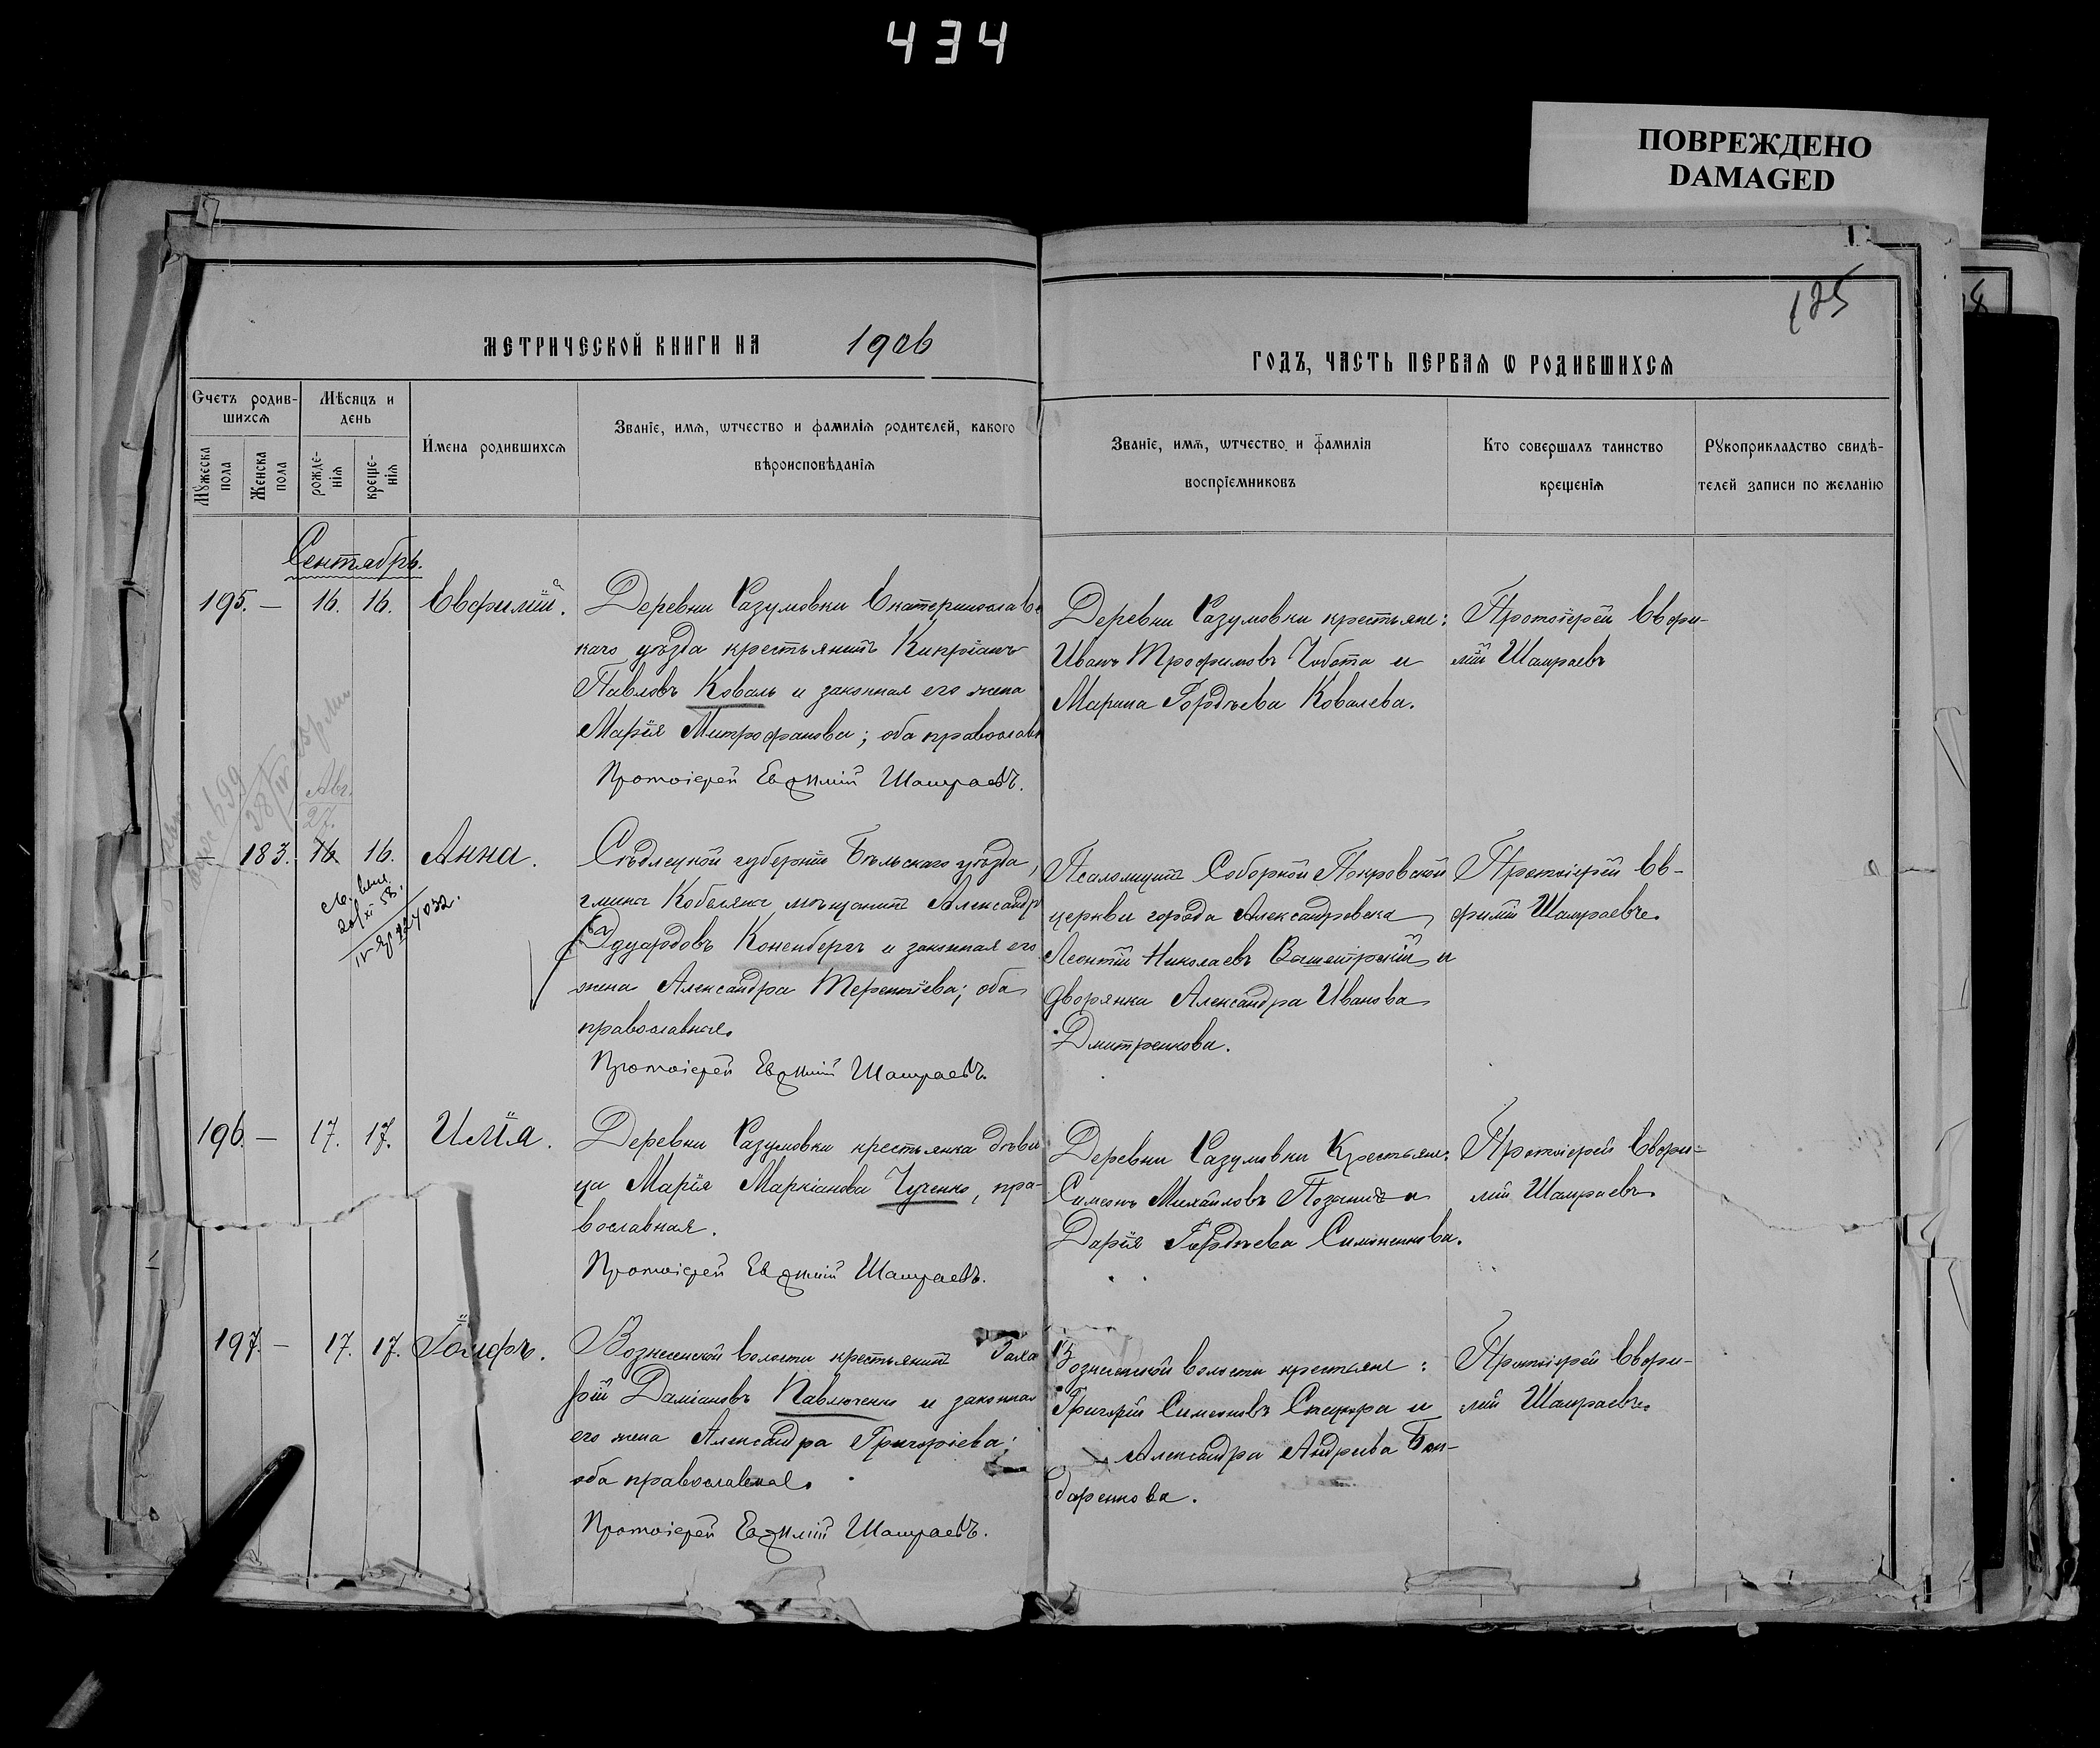 434
ПОВРЕЖДЕНО
DAMAGED
125
МЕТРИЧЕСКОЙ КНИГИ НА 1906
ГОДЪ, ЧАСТЬ ПЕРВАѦ Ѡ РОДИВШИХСѦ
Счетъ родив-
шихсѧ
Мѣсяцъ и
день
Мꙋжеска
пола
Женска
пола
рожде-
нїѧ
креще-
нїѧ
Имена родившихсѧ
Званїе, имѧ, ѡтчество и фамилїѧ родителей, какого
вѣроисповѣданїѧ
Званїе, имѧ, ѡтчество и фамилїѧ
воспрїемниковъ
Кто совершалъ таинство
крещенїѧ
Рꙋкоприкладство свидѣ-
телей записи по желанїю
Сентябрь.
195. — 16. 16. Евфимій.
Деревни Разумовки Екатеринославс
каго уѣзда крестьянинъ Кипріанъ
Павловъ Коваль и законная его жена
Марія Митрофанова; оба православн
Протоіерей Евфимій Шамраевъ.
Деревни Разумовки крестьяне:
Иванъ Трофимовъ Чобота и
Марина Гордѣева Ковалева.
Протоіерей Евфи-
мій Шамраевъ
Авг.
27.
— 183. 16 16. Анна.
20/XI 58.
Сѣдлецкой губерніи Бѣльскаго уѣзда,
гмина Кобыляна мѣщанинъ Александр
Эдуардовъ Коненбергъ и законная его
жена Александра Терентіева; оба
православные.
Протоіерей Евфимій Шамраевъ.
Псаломщикъ Соборной Покровской
церкви города Александровска
Леонтій Николаевъ и
дворянка Александра Иванова
Дмитренкова.
Протоіерей Ев-
фимій Шамраевъ.
196. — 17. 17. Илія.
Деревни Разумовки крестьянка дѣви
ца Марія Маркіанова Чученко, пра-
вославная.
Протоіерей Евфимій Шамраевъ.
Деревни Разумовки Крестьяне:
Симеонъ Михайловъ и
Дарія Гордѣева Симоненкова.
Протоіерей Евфи-
мій Шамраевъ
197. — 17. 17. Іосифъ.
Вознесенской волости крестьянинъ
Даміановъ Павлюченко и законная
его жена Александра Григоріева;
оба православные.
Протоіерей Евфимій Шамраевъ.
Вознесенской волости крестьяне:
Григорій Симеоновъ и
Александра Андреева Бон-
даренкова.
Протоіерей Евфи-
мій Шамраевъ.